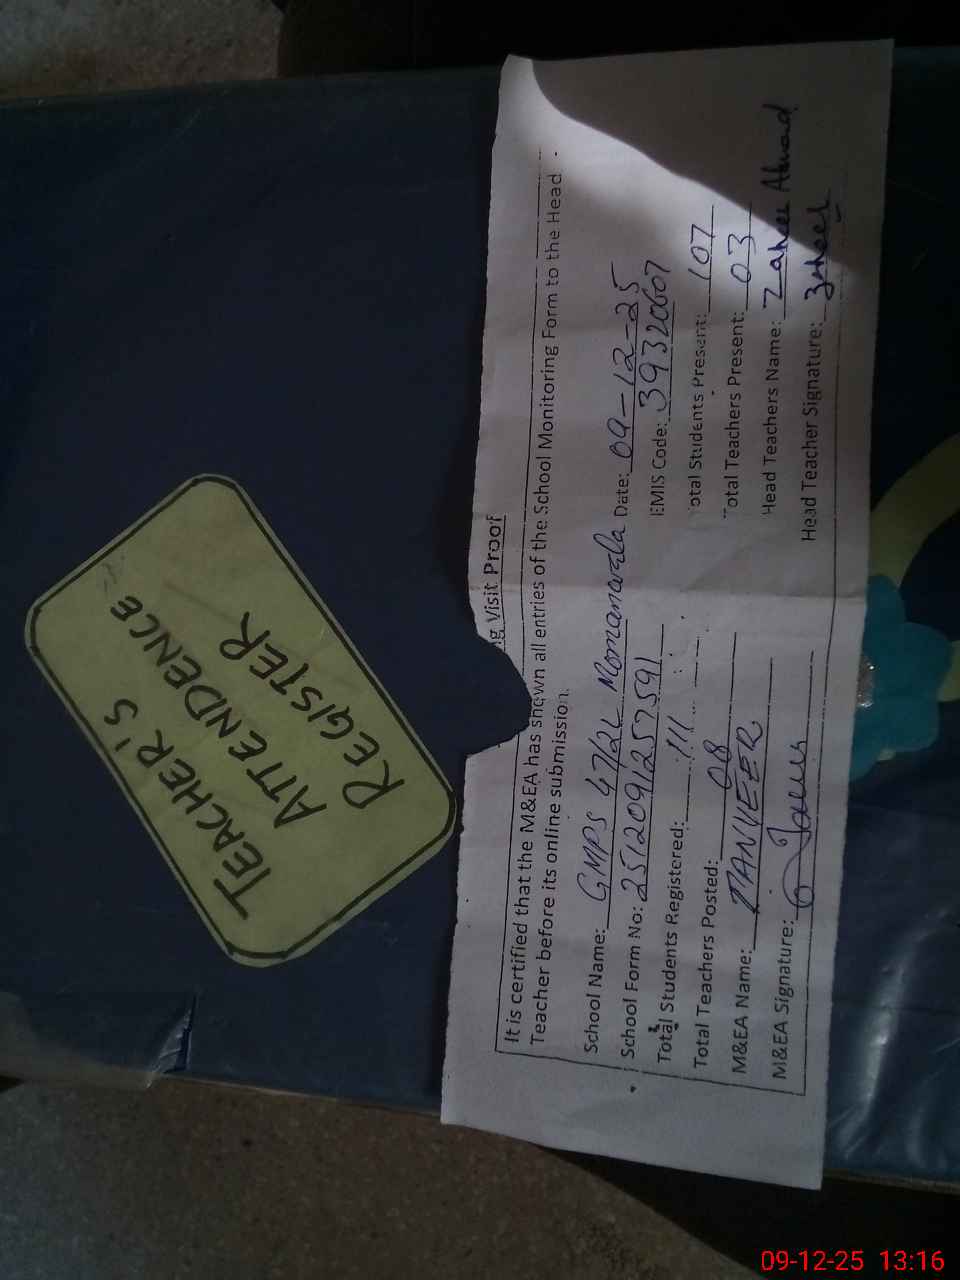 TEACHER'S
ATTENDENCE
REGISTER
g Visit Proof
It is certified that the M&EA has shown all entries of the School Monitoring Form to the Head
Teacher before its online submission.
School Name: GMPS 47/2L Momanwala Date: 09-12-25
School Form No: 2512091257591 EMIS Code: 39320607
Total Students Registered: 111 Total Students Present: 107
Total Teachers Posted: 08 Total Teachers Present: 03
M&EA Name: TANVEER Head Teachers Name: Zaheer Ahmad
M&EA Signature: Head Teacher Signature: Zaheer
09-12-25 13:16